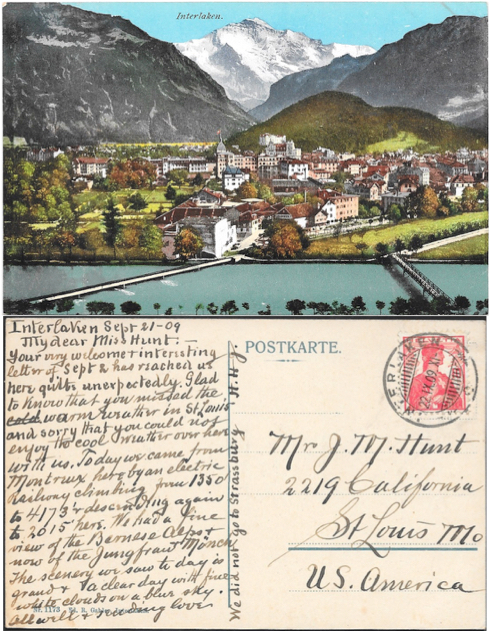 Interlaken.
Interlaken Sept 21-09
My dear Miss Hunt.-
Your very welcome + interesting
letter of Sept 2 has reached us
here quite unexpectedly. Glad
to know that you missed the
cold warm weather in St Louis
and sorry that you could not
enjoy the cool weather over here
with us. Today we came from
Montreux here by an electric
Railway climbing from 1350
to 4173 + descending again
to 2015 here. We had a fine
view of the Bernese Alps +
now of the Jungfrau + Mönch
The scenery we saw to day is
grand + a clear day with fine
white clouds on a blue sky.
All well + sending love
We did not go to Strassburg
POSTKARTE.
INTERLAKEN
22.IX.09
Mr J. M. Hunt
2219 California
St Louis Mo
U.S. America